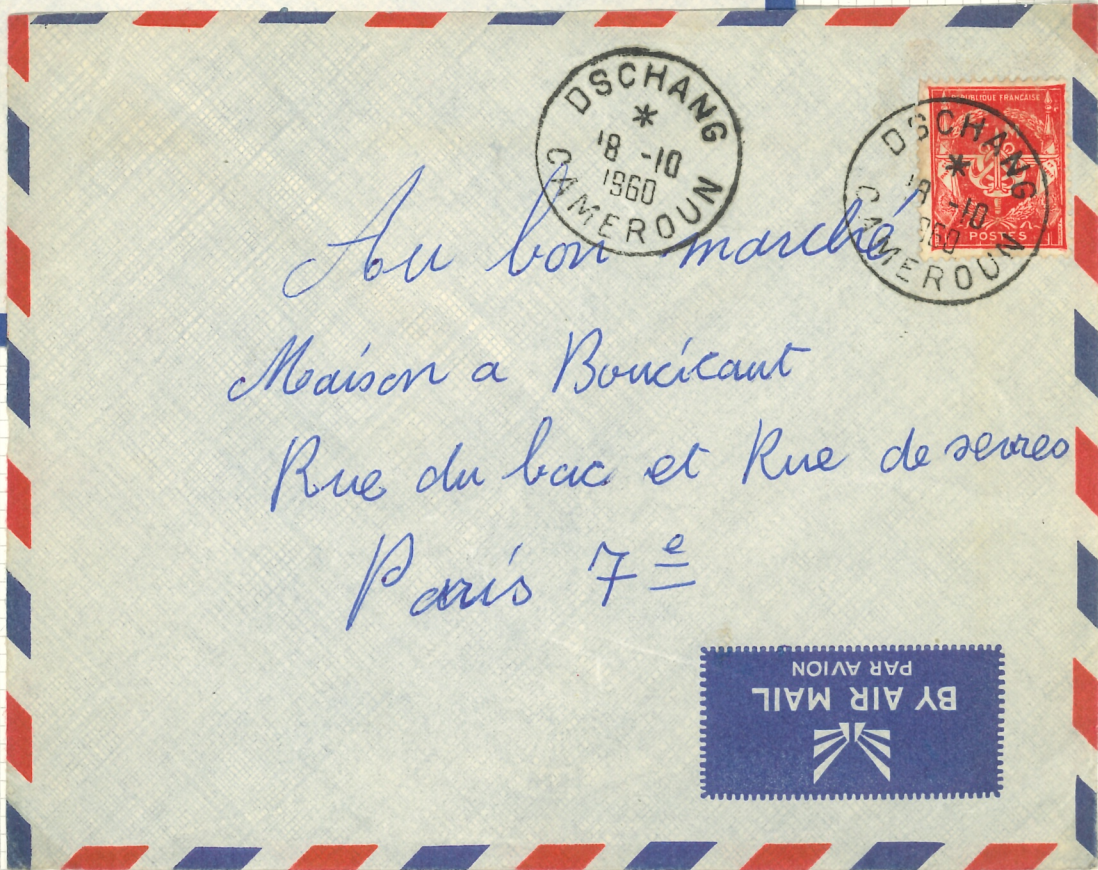 DSCHANG
18 -10
1960
CAMEROUN
REPUBLIQUE FRANÇAISE
POSTES
DSCHANG
18 -10
1960
CAMEROUN
Au bon marché
Maison a Boucicaut
Rue du bac et Rue de sevres
Paris 7e
BY AIR MAIL
PAR AVION